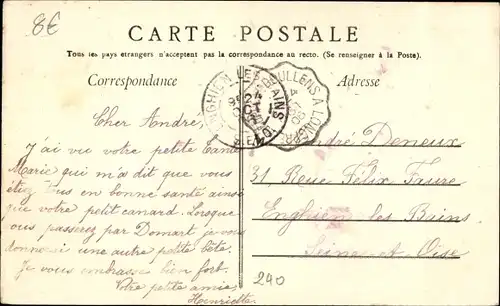 8€
CARTE POSTALE
Tous les pays etrangers n'acceptent pas la correspondance au recto. (Se renseigner à la Poste).
Correspondance
Adresse
ENGHIEN LES BAINS
DOULLENS A LONGPRÉ
Cher André,
J'ai vu votre petite Tante
Marie qui m'a dit que vous
étiez tous en bonne santé ainsi
que votre petit canard. Lorsque
vous passerez par Domart je vous
donnerai une autre petite bête.
Je vous embrasse bien fort.
Votre petite amie,
Henriette.
André Deneux
31, Rue Félix Faure
Enghien les Bains
Seine et Oise
240